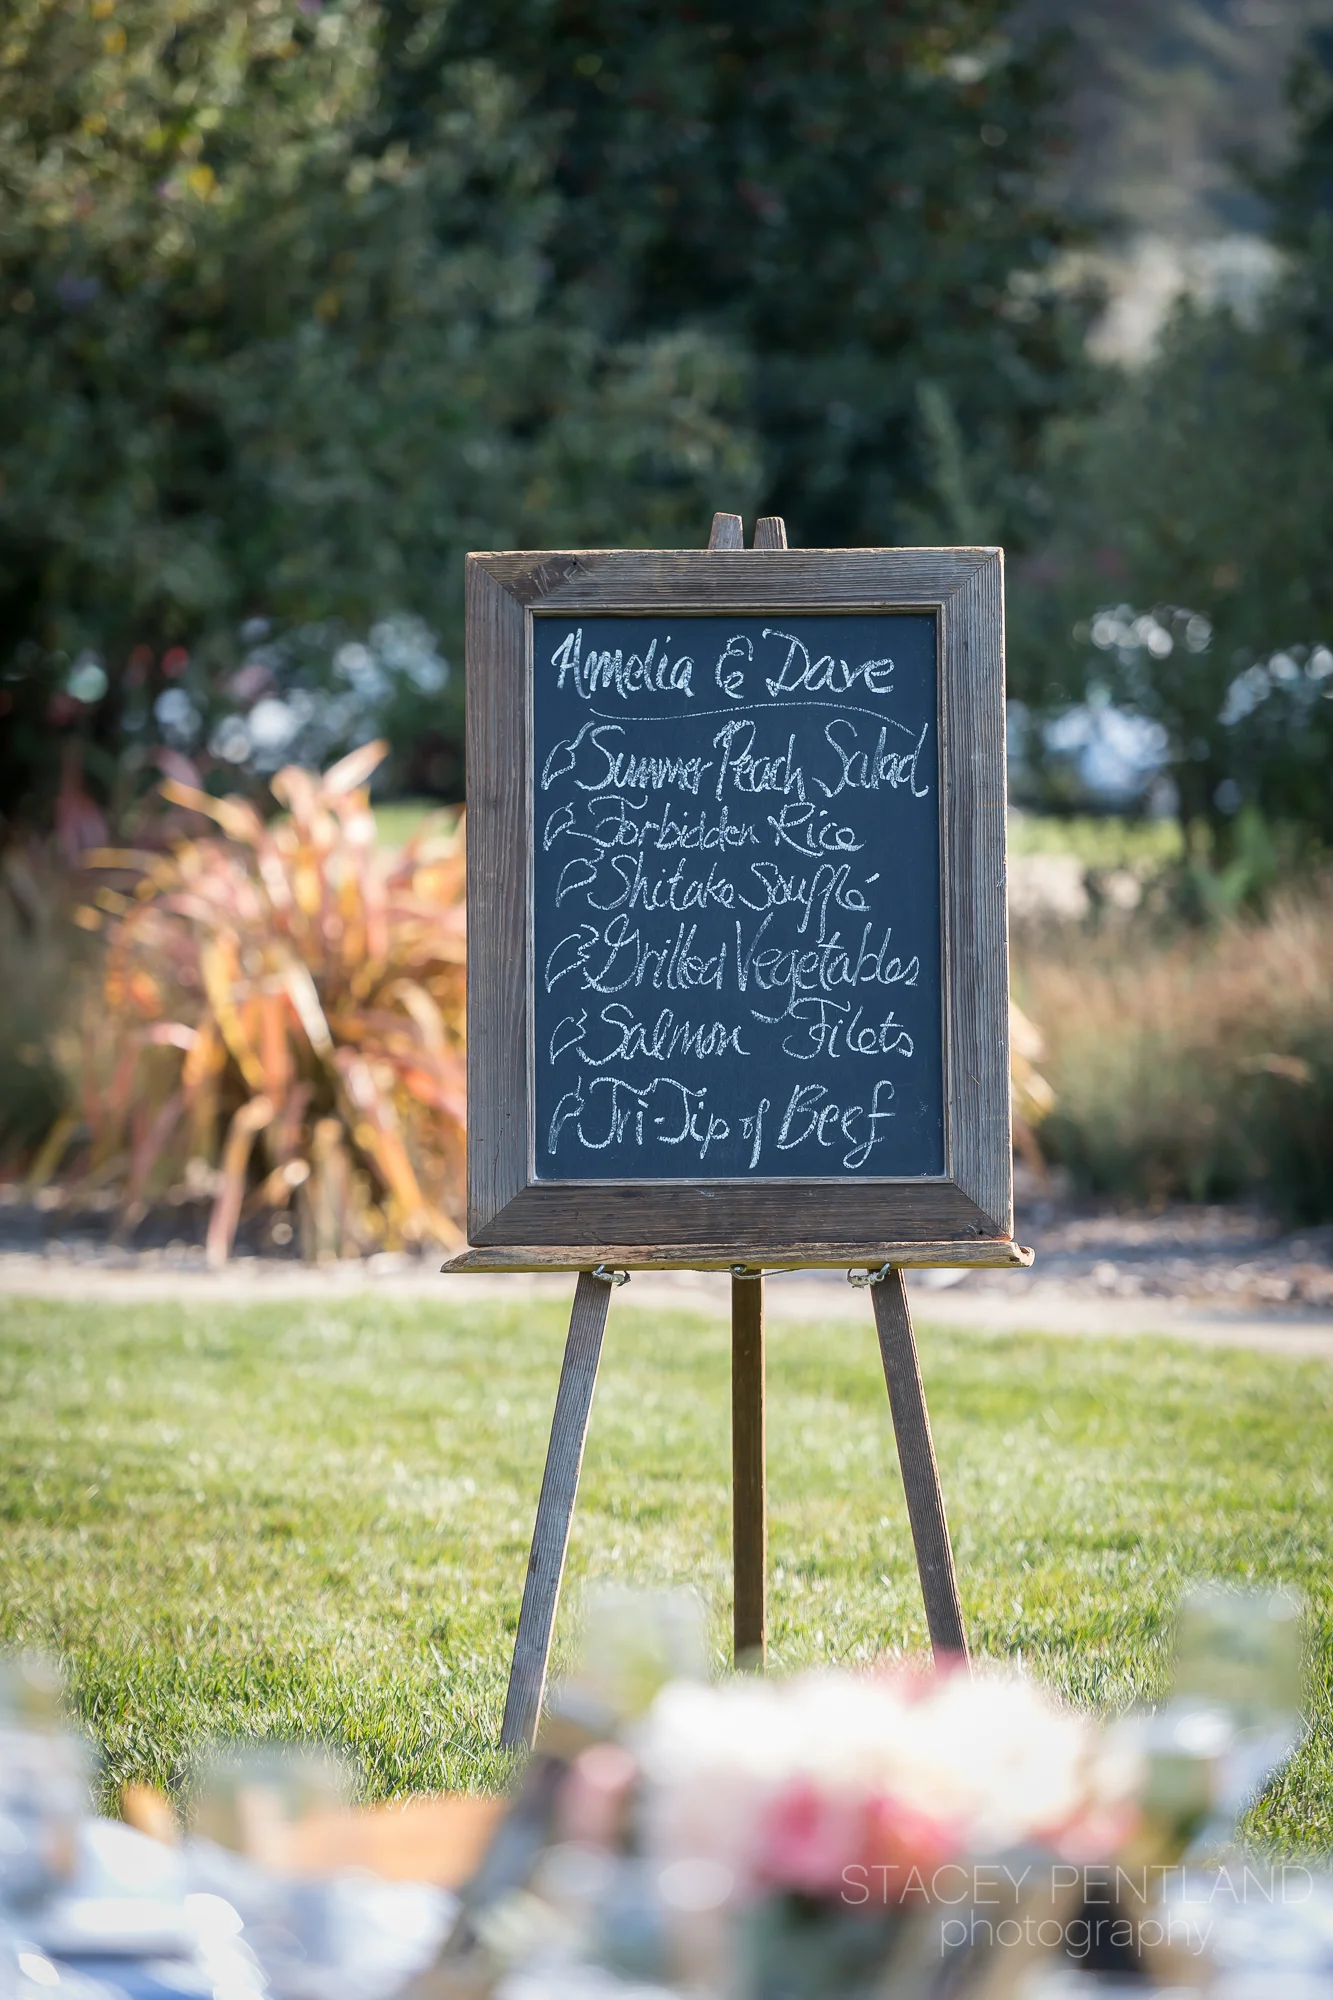 Amelia & Dave
Summer Peach Salad
Forbidden Rice
Shitake Soufflé
Grilled Vegetables
Salmon Filets
Tri-Tip of Beef
STACEY PENTLAND
photography